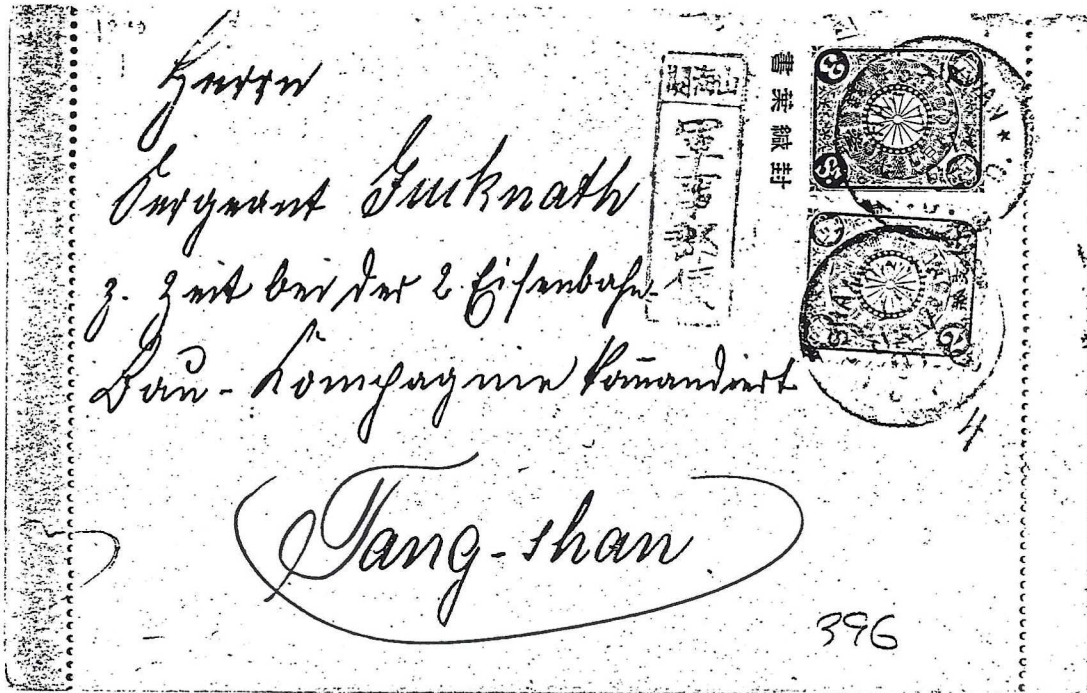 Herrn
Sergeant Jucknath
z. Zeit bei der 2 Eisenbahn-
Bau-Kompagnie komandiert
Tang-shan
396
4
封緘葉書